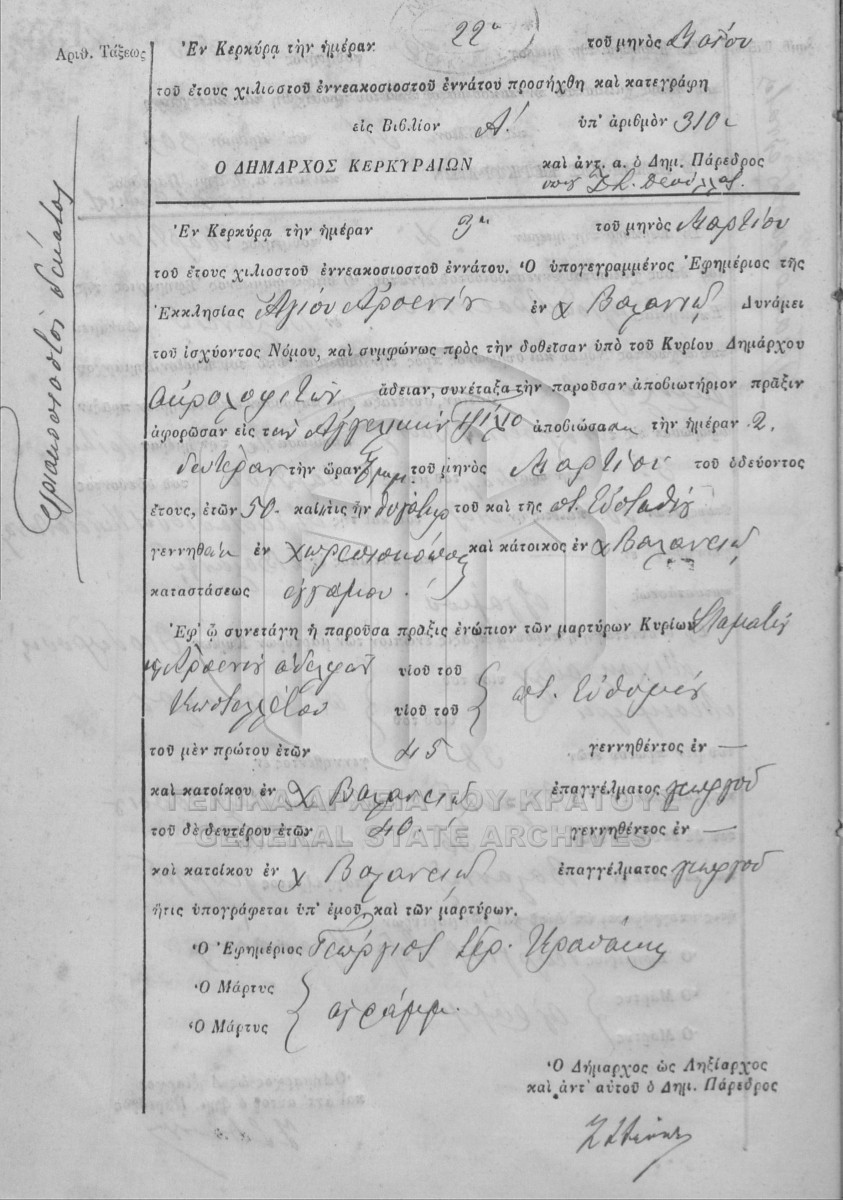 Ἀριθ. Τάξεως
Τριακοσιοστὸς δέκατος
Ἐν Κερκύρᾳ τὴν ἡμέραν 22α τοῦ μηνὸς Μαΐου
τοῦ ἔτους χιλιοστοῦ ἐννεακοσιοστοῦ ἐννάτου προσήχθη καὶ κατεγράφη
εἰς Βιβλίον Α! ὑπ' ἀριθμὸν 310
Ο ΔΗΜΑΡΧΟΣ ΚΕΡΚΥΡΑΙΩΝ καὶ ἀντ. α. ὁ Δημ. Πάρεδρος
Ἐν Κερκύρᾳ τὴν ἡμέραν 3ην τοῦ μηνὸς Μαρτίου
τοῦ ἔτους χιλιοστοῦ ἐννεακοσιοστοῦ ἐννάτου. Ὁ ὑπογεγραμμένος Ἐφημέριος τῆς
Ἐκκλησίας Ἁγίου Ἀρσενίου ἐν χ Βαλανειῷ Δυνάμει
τοῦ ἰσχύοντος Νόμου, καὶ συμφώνως πρὸς τὴν δοθεῖσαν ὑπὸ τοῦ Κυρίου Δημάρχου
ἄδειαν, συνέταξα τὴν παροῦσαν ἀποβιωτήριον πρᾶξιν
ἀφορῶσαν εἰς τὴν Ἀγγελικὴν ἀποβιώσασαν τὴν ἡμέραν 2.
δευτέραν τὴν ὥραν τοῦ μηνὸς Μαρτίου τοῦ ὁδεύοντος
ἔτους, ἐτῶν 50 καὶ ἥτις ἦν θυγάτηρ τοῦ καὶ τῆς ποτ. Εὐσταθίου
γεννηθεῖσα ἐν χωρεπισκόπους καὶ κάτοικος ἐν χ Βαλανειῷ
καταστάσεως ἀγάμου.
Ἐφ' ᾧ συνετάγη ἡ παροῦσα πρᾶξις ἐνώπιον τῶν μαρτύρων Κυρίων Σταματίου
κ Ἀρσενίου ἀδελφῶν υἱοῦ τοῦ
υἱοῦ τοῦ ποτ. Εὐθυμίου
τοῦ μὲν πρώτου ἐτῶν 45 γεννηθέντος ἐν —
καὶ κατοίκου ἐν χ Βαλανειῷ ἐπαγγέλματος γεωργοῦ
ΓΕΝΙΚΑ ΑΡΧΕΙΑ ΤΟΥ ΚΡΑΤΟΥΣ
τοῦ δὲ δευτέρου ἐτῶν 40 γεννηθέντος ἐν —
GENERAL STATE ARCHIVES
καὶ κατοίκου ἐν χ Βαλανειῷ ἐπαγγέλματος γεωργοῦ
ἥτις ὑπογράφεται ὑπ' ἐμοῦ καὶ τῶν μαρτύρων.
Ὁ Ἐφημέριος Γεώργιος ἱερ.
Ὁ Μάρτυς
Ὁ Μάρτυς ἀγράμμ.
Ὁ Δήμαρχος ὡς Ληξίαρχος
καὶ ἀντ' αὐτοῦ ὁ Δημ. Πάρεδρος